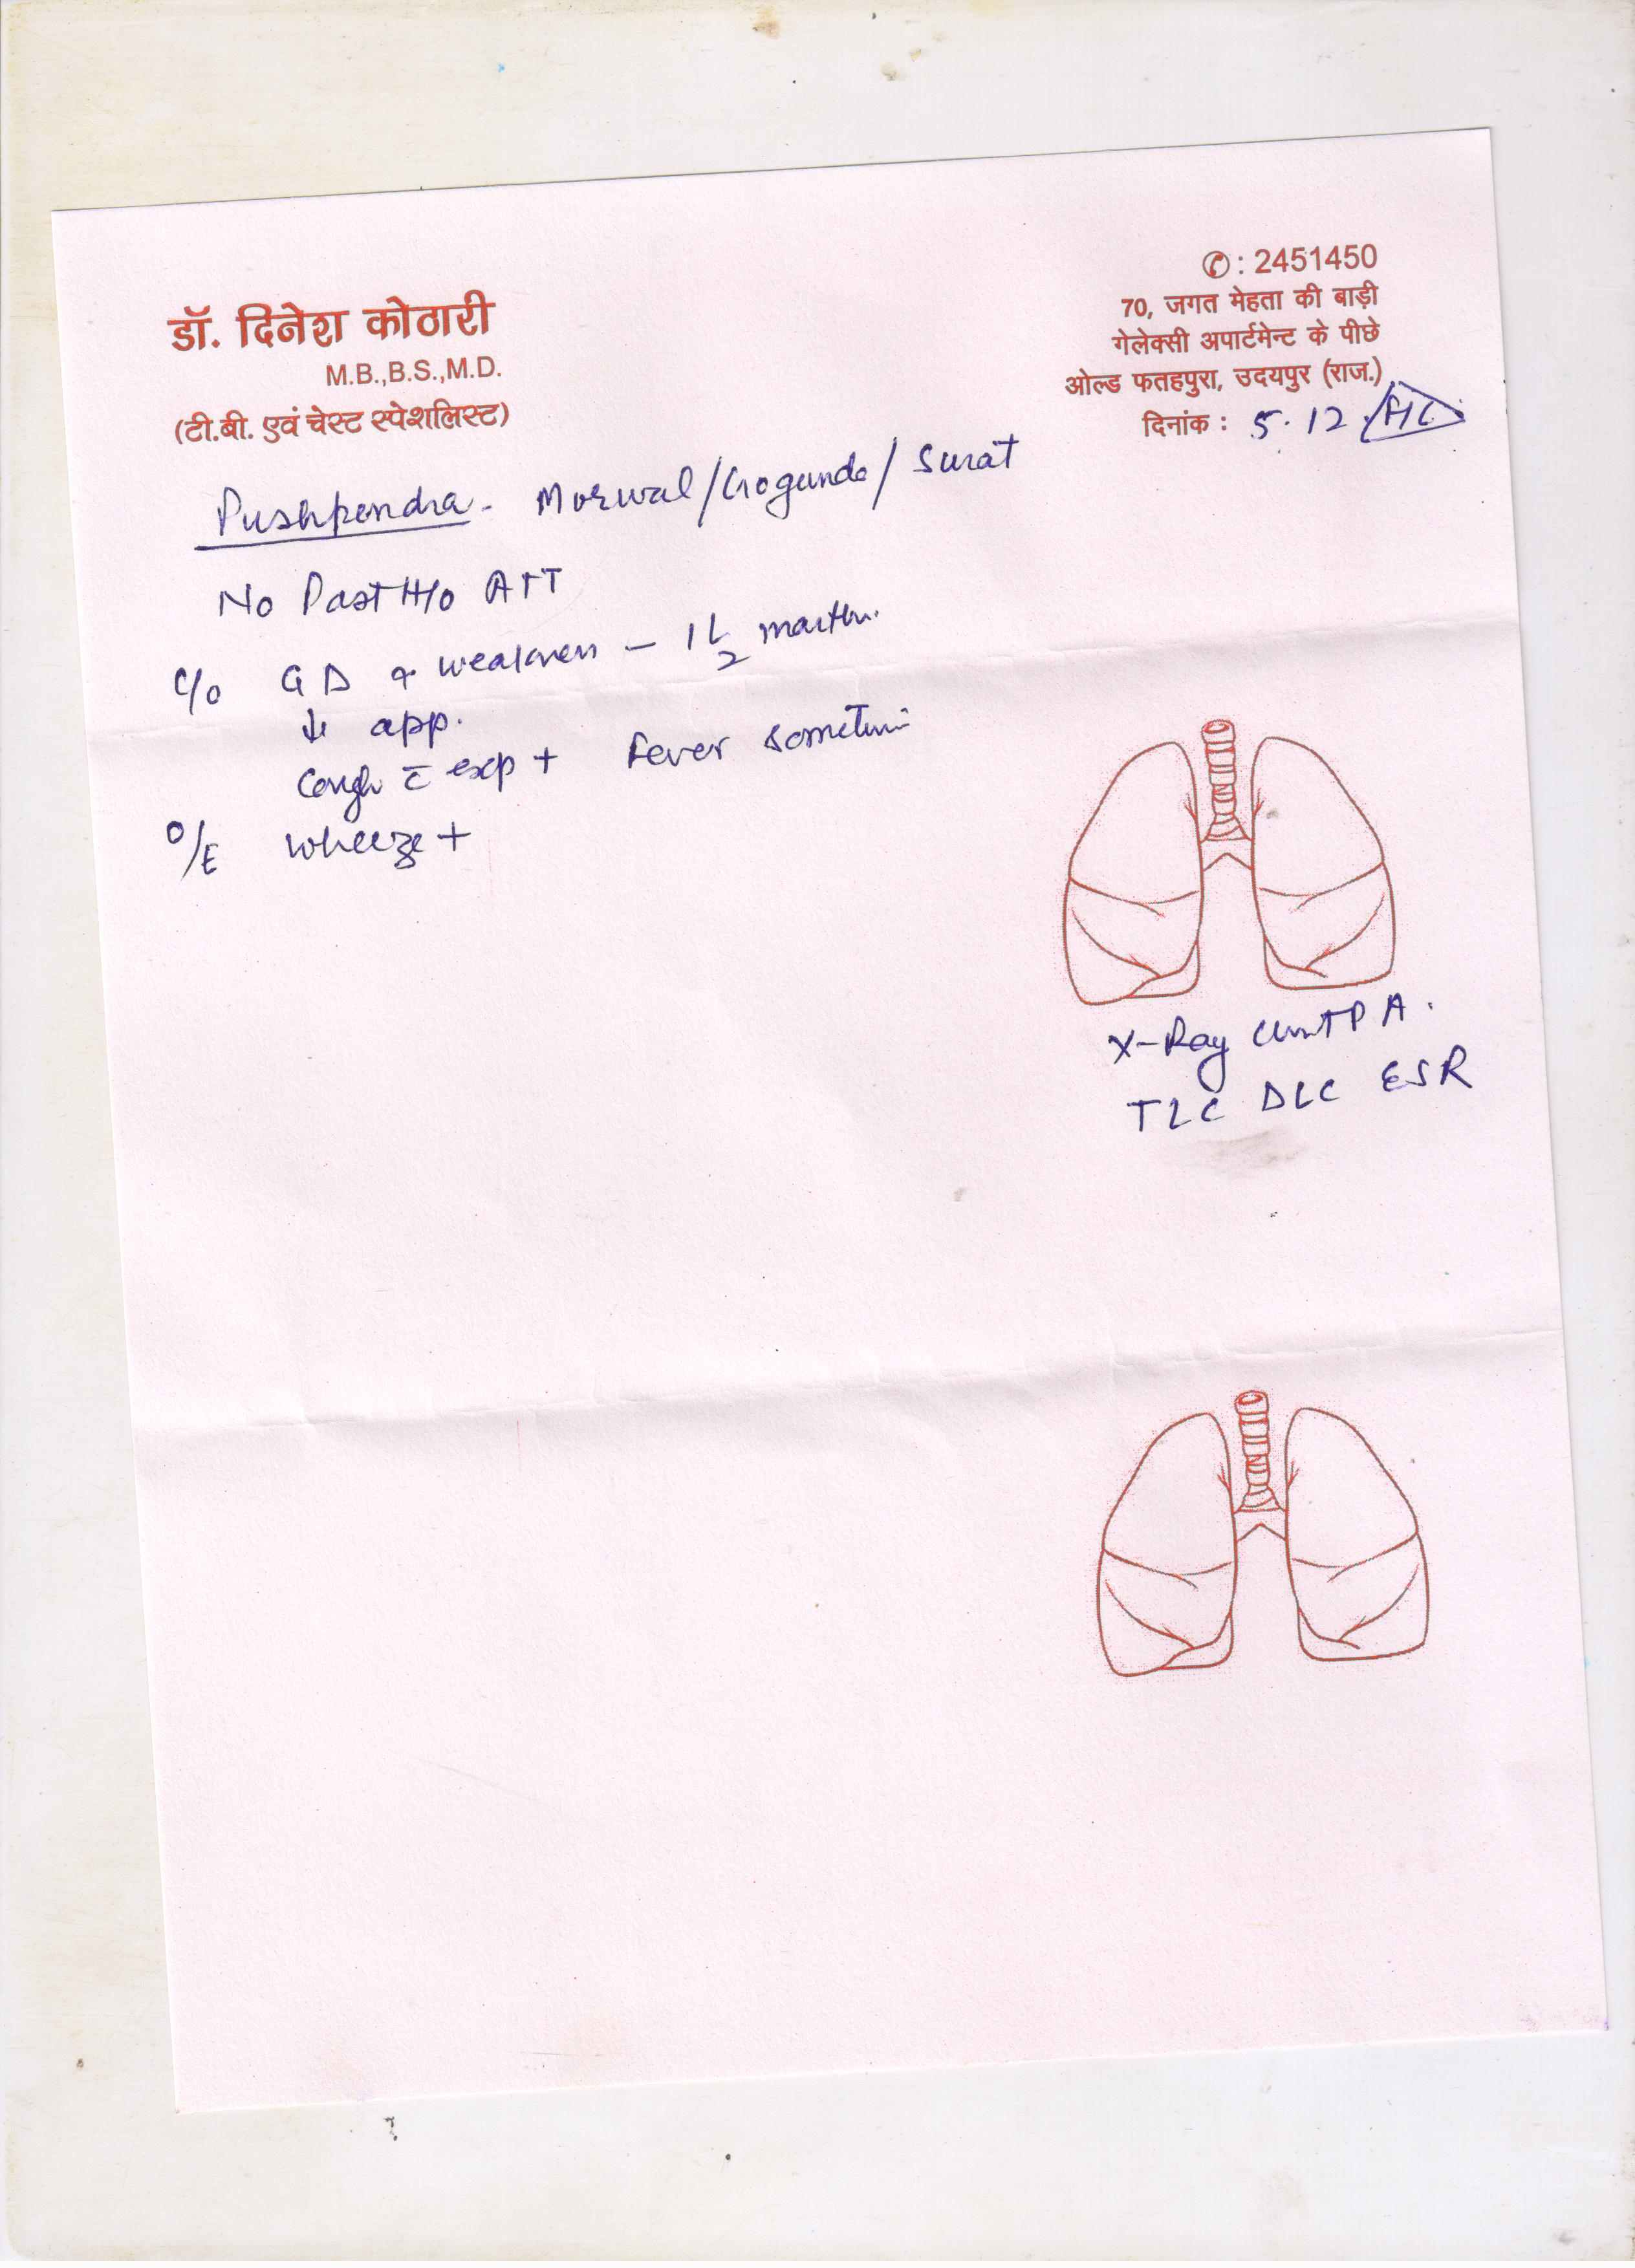 ✆: 2451450
डॉ. दिनेश कोठारी
M.B.,B.S.,M.D.
(टी.बी. एवं चेस्ट स्पेशलिस्ट)
70, जगत मेहता की बाड़ी
गेलेक्सी अपार्टमेन्ट के पीछे
ओल्ड फतहपुरा, उदयपुर (राज.)
दिनांक : 5.12.
Pushpendra - Morwal/Gogunda/Surat
No Past H/o ATT
C/o GD & weakness - 1 1/2 months.
↓ app.
Cough c̄ exp + Fever sometime
O/E wheeze +
X-Ray chest PA.
TLC DLC ESR